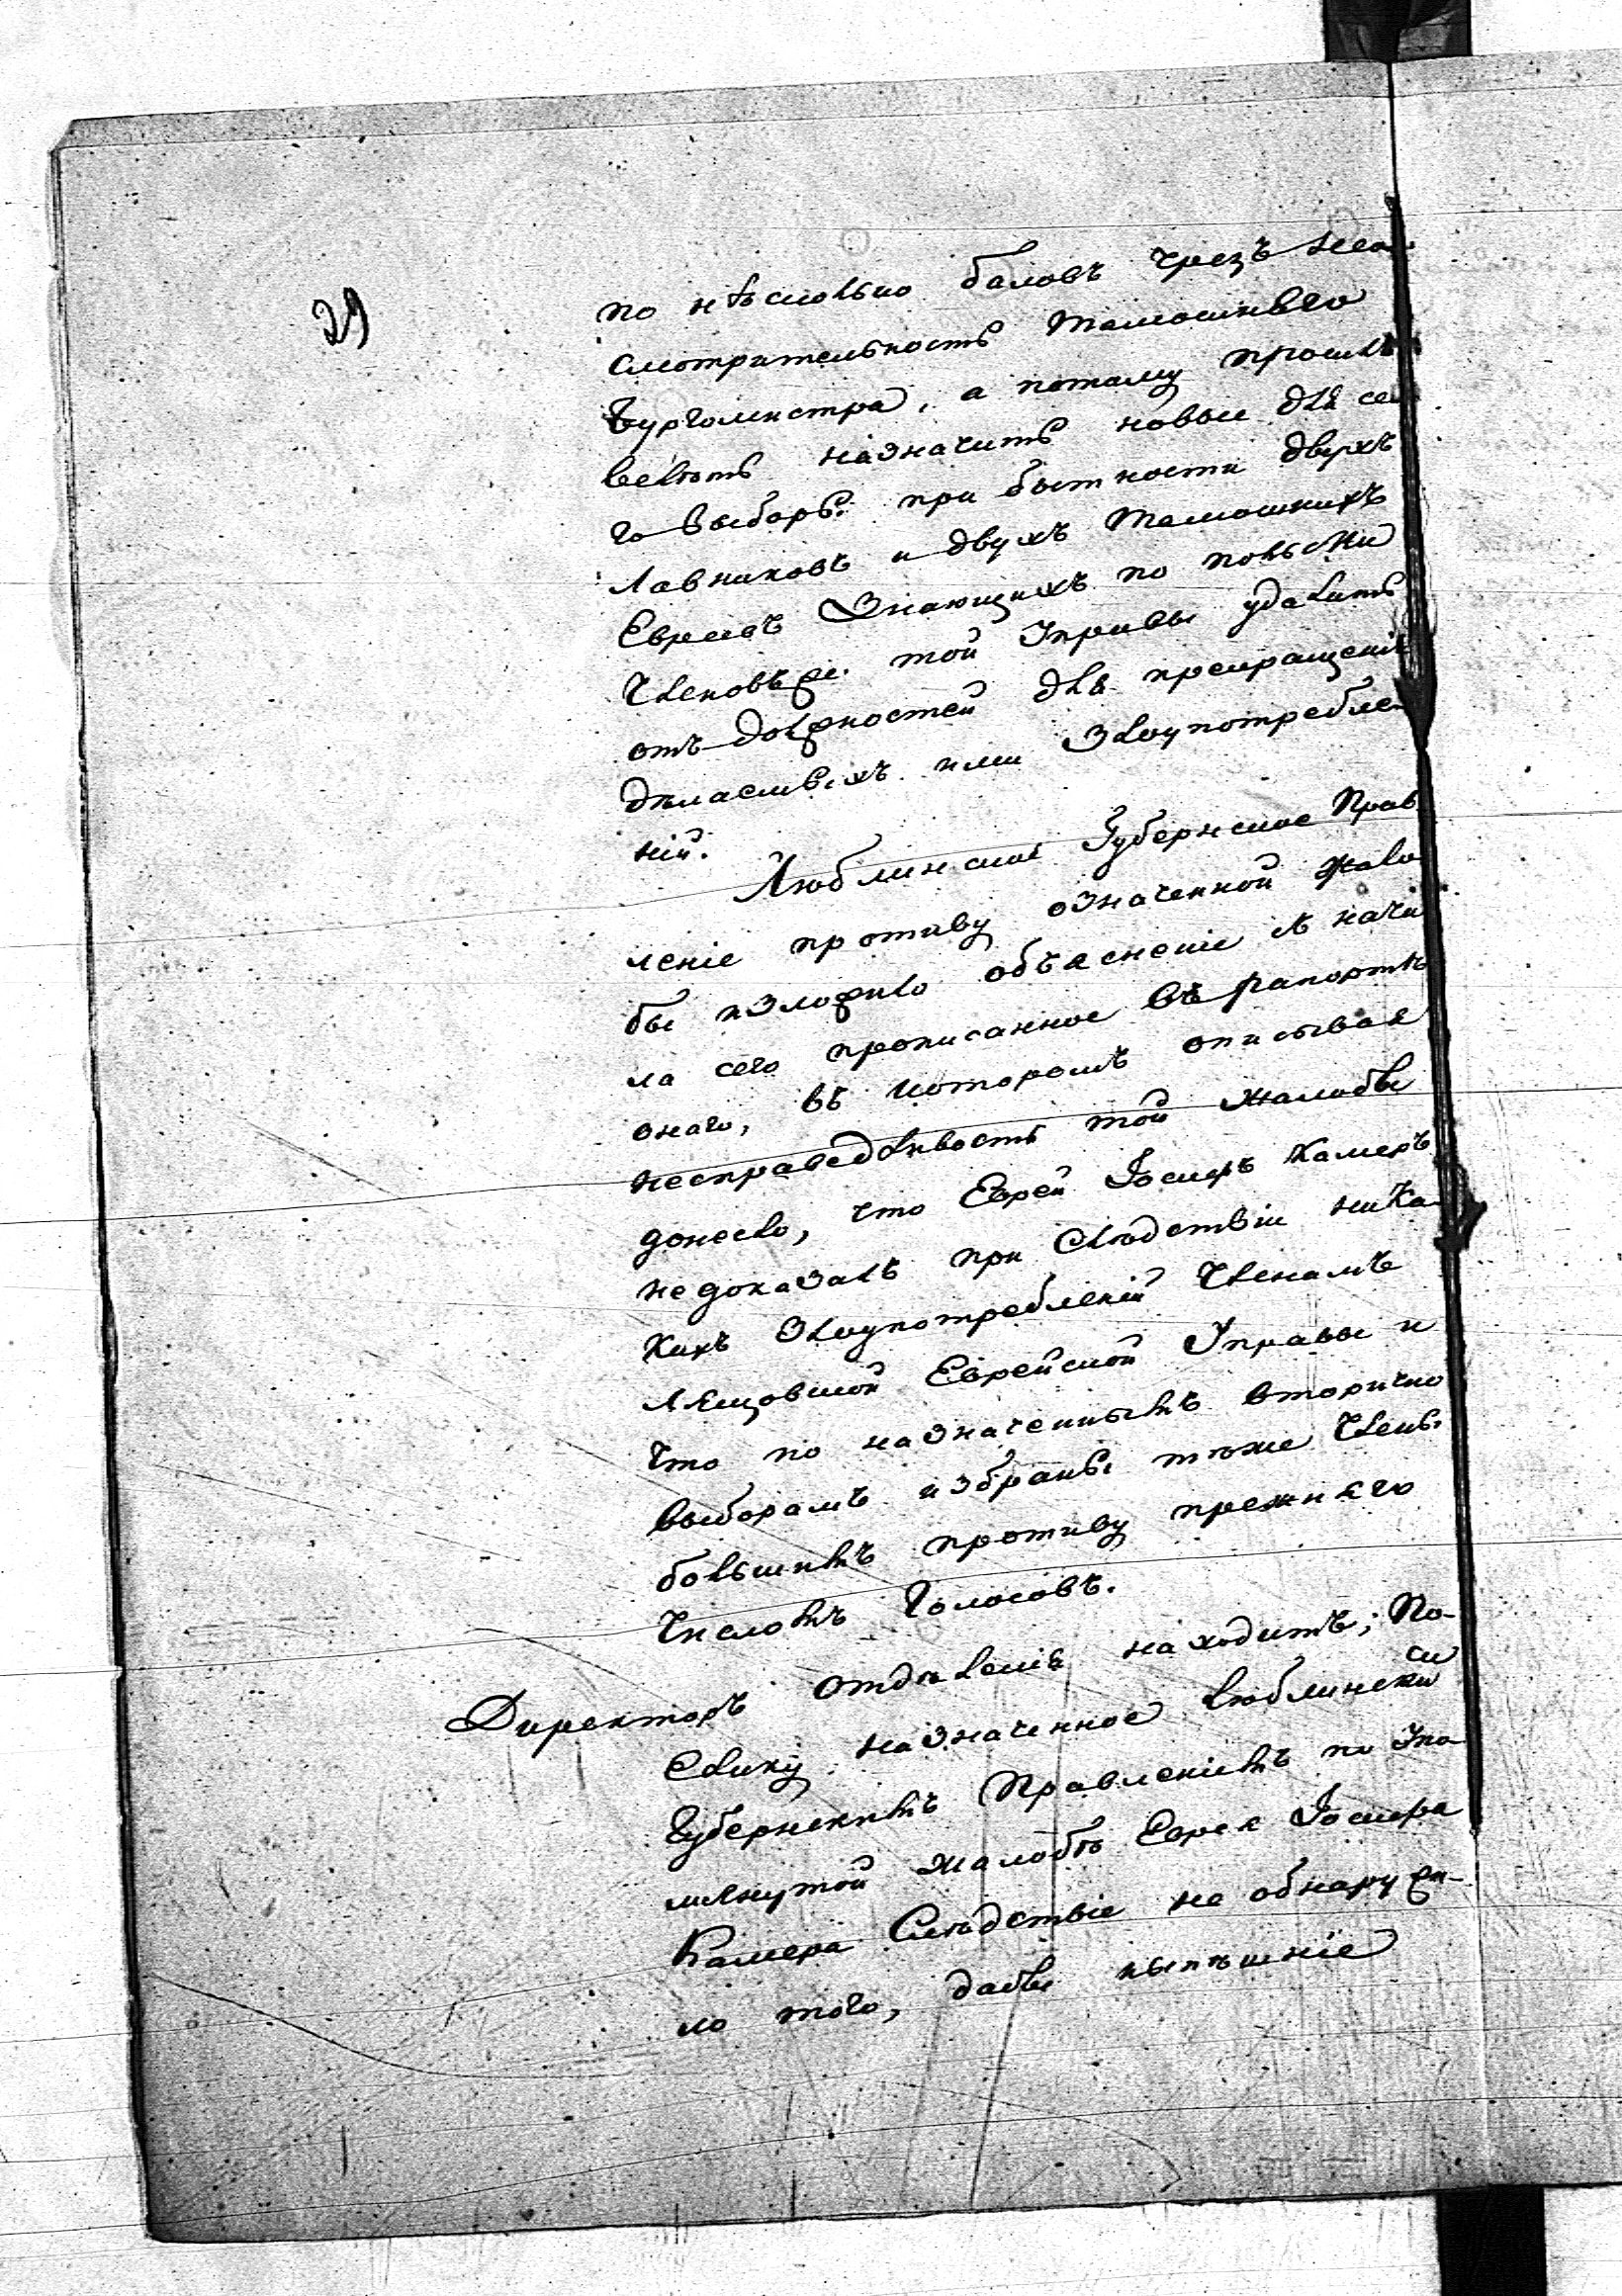 29
по нѣсколько баловъ чрезъ нео-
смотрительность тамошняго
Бургомистра, а потому проситъ
велѣть назначить новые для се-
го выборы при бытности двухъ
Лавниковъ и двухъ тамошнихъ
Евреевъ знающихъ по польски
Членовъ же той Управы удалить
отъ должностей для прекращенія
дѣласмыхъ ими злоупотребле-
ній.
Люблинское Губернское Прав-
леніе противу означенной жало-
бы изложило объясненіе съ нача-
ла сего прописанное въ рапортѣ
онаго, въ которомъ описывая
несправедливость той жалобы
донесло, что Еврей Іосифъ Камеръ
не доказалъ при слѣдствіи ника-
кихъ злоупотребленій Членамъ
Еврейской Управы и
что по назначеннымъ вторично
выборамъ избраны тѣже Члены
большимъ противу прежняго
числомъ голосовъ.
Директоръ Отдѣленія находитъ; По-
елику назначенное Люблинскимъ
Губернскимъ Правленіемъ по упо-
мянутой жалобѣ Еврея
Камера Слѣдствіе не обнаружи-
ло того, дабы нынѣшніе